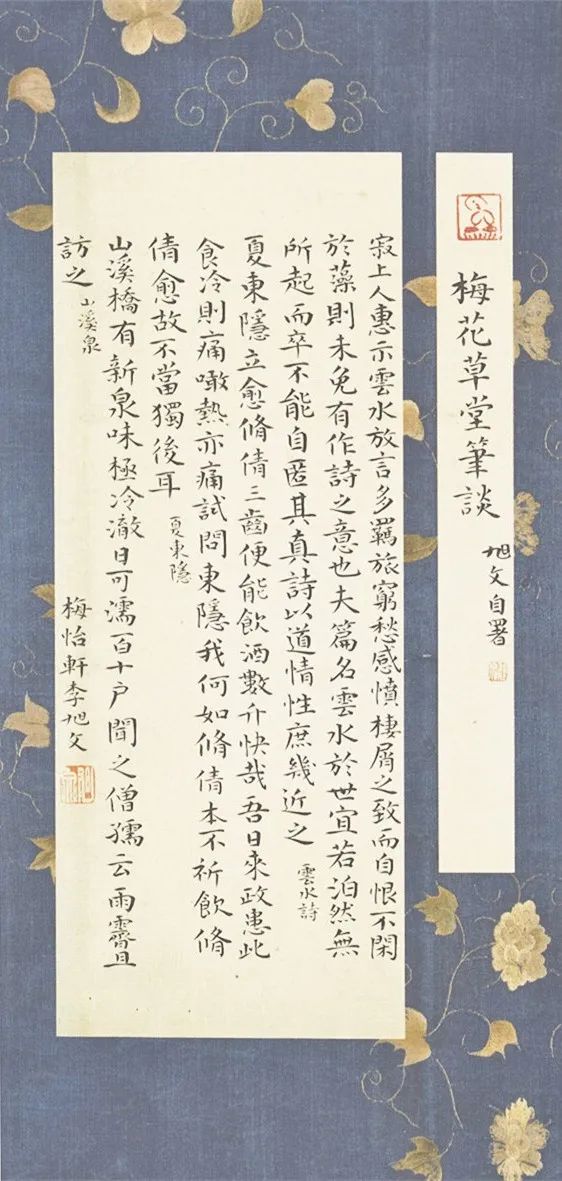 梅花草堂筆談
旭文自署
寂上人惠示雲水放言多羈旅窮愁感憤棲屑之致而自恨不閑
於藻則未免有作詩之意也夫篇名雲水於世宜若泊然無
所起而卒不能自匿其真詩以道情性庶幾近之
雲水詩
夏東隱立愈脩倩三齒便能飲酒數升快哉吾日來政患此
食冷則痛噉熱亦痛試問東隱我何如脩倩本不祈飲脩
倩愈故不當獨後耳
夏東隱
山溪橋有新泉味極冷澈日可濡百十户聞之僧孺云雨霽且
訪之
山溪泉
梅怡軒李旭文